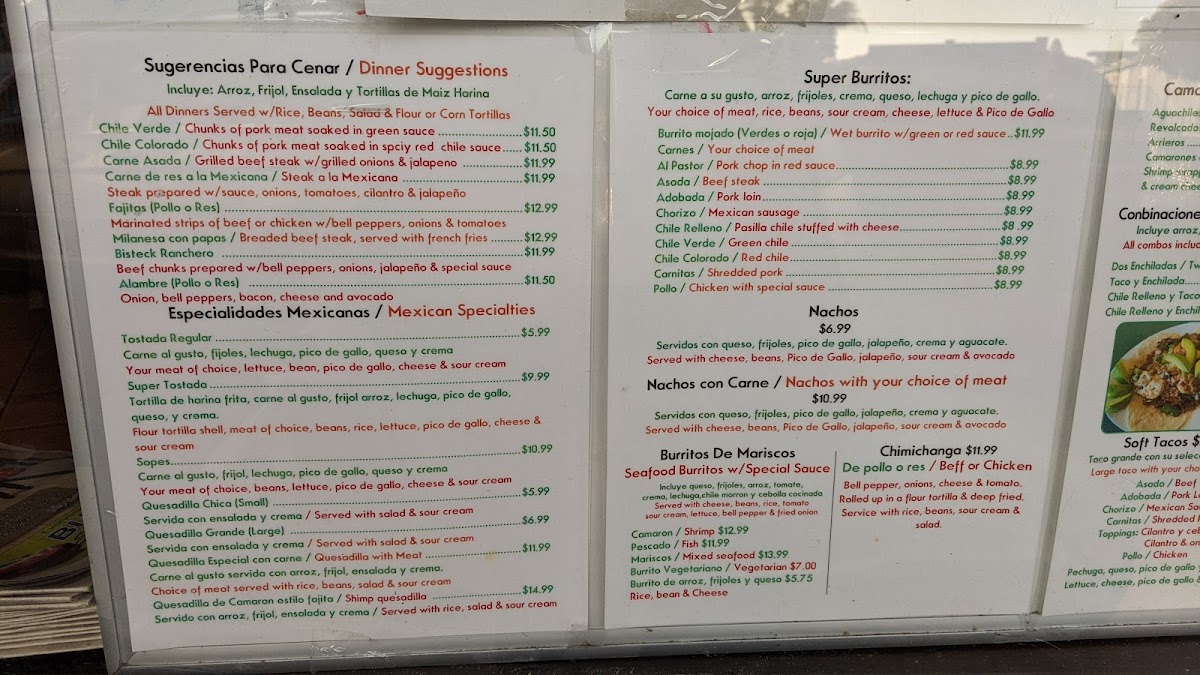 Sugerencias Para Cenar / Dinner Suggestions
Incluye: Arroz, Frijol, Ensalada y Tortillas de Maiz Harina
All Dinners Served w/Rice, Beans, Salad & Flour or Corn Tortillas
Chile Verde / Chunks of pork meat soaked in green sauce ...................$11.50
Chile Colorado / Chunks of pork meat soaked in spciy red chile sauce.....$11.50
Carne Asada / Grilled beef steak w/grilled onions & jalapeno .................$11.99
Carne de res a la Mexicana / Steak a la Mexicana ...........................$11.99
Steak prepared w/sauce, onions, tomatoes, cilantro & jalapeño
Fajitas (Pollo o Res) ..................................................................$12.99
Marinated strips of beef or chicken w/bell peppers, onions & tomatoes
Milanesa con papas / Breaded beef steak, served with french fries .........$12.99
Bisteck Ranchero ...................................................................$11.99
Beef chunks prepared w/bell peppers, onions, jalapeño & special sauce
Alambre (Pollo o Res) ..............................................................$11.50
Onion, bell peppers, bacon, cheese and avocado
Especialidades Mexicanas / Mexican Specialties
Tostada Regular ......................................................................$5.99
Carne al gusto, fijoles, lechuga, pico de gallo, queso y crema
Your meat of choice, lettuce, bean, pico de gallo, cheese & sour cream
Super Tostada.......................................................................$9.99
Tortilla de harina frita, carne al gusto, frijol arroz, lechuga, pico de gallo,
queso, y crema.
Flour tortilla shell, meat of choice, beans, rice, lettuce, pico de gallo, cheese &
sour cream
Sopes.................................................................................$10.99
Carne al gusto, frijol, lechuga, pico de gallo, queso y crema
Your meat of choice, beans, lettuce, pico de gallo, cheese & sour cream
Quesadilla Chica (Small) ..........................................................$5.99
Servida con ensalada y crema / Served with salad & sour cream
Quesadilla Grande (Large) ........................................................$6.99
Servida con ensalada y crema / Served with salad & sour cream
Quesadilla Especial con carne / Quesadilla with Meat .......................$11.99
Carne al gusto servida con arroz, frijol, ensalada y crema.
Choice of meat served with rice, beans, salad & sour cream
Quesadilla de Camaron estilo fajita / Shimp quesadilla .....................$14.99
Servido con arroz, frijol, ensalada y crema / Served with rice, salad & sour cream
Super Burritos:
Carne a su gusto, arroz, frijoles, crema, queso, lechuga y pico de gallo.
Your choice of meat, rice, beans, sour cream, cheese, lettuce & Pico de Gallo
Burrito mojado (Verdes o roja) / Wet burrito w/green or red sauce..$11.99
Carnes / Your choice of meat
Al Pastor / Pork chop in red sauce.......................................$8.99
Asada / Beef steak .........................................................$8.99
Adobada / Pork loin.........................................................$8.99
Chorizo / Mexican sausage ................................................$8.99
Chile Relleno / Pasilla chile stuffed with cheese..........................$8 .99
Chile Verde / Green chile ..................................................$8.99
Chile Colorado / Red chile..................................................$8.99
Carnitas / Shredded pork ..................................................$8.99
Pollo / Chicken with special sauce ........................................$8.99
Nachos
$6.99
Servidos con queso, frijoles, pico de gallo, jalapeño, crema y aguacate.
Served with cheese, beans, Pico de Gallo, jalapeño, sour cream & avocado
Nachos con Carne / Nachos with your choice of meat
$10.99
Servidos con queso, frijoles, pico de gallo, jalapeño, crema y aguacate.
Served with cheese, beans, Pico de Gallo, jalapeño, sour cream & avocado
Burritos De Mariscos
Seafood Burritos w/Special Sauce
Incluye queso, frijoles, arroz, tomate,
crema, lechuga,chile morron y cebolla cocinada
Served with cheese, beans, rice, tomato
sour cream, lettuce, bell pepper & fried onion
Camaron / Shrimp $12.99
Pescado / Fish $11.99
Mariscos / Mixed seafood $13.99
Burrito Vegetariano / Vegetarian $7.00
Burrito de arroz, frijoles y queso $5.75
Rice, bean & Cheese
Chimichanga $11.99
De pollo o res / Beff or Chicken
Bell pepper, onions, cheese & tomato.
Rolled up in a flour tortilla & deep fried.
Service with rice, beans, sour cream &
salad.
Aguachiles
Revolcado
Arrieros
Camarones
Shrimp wrapp
& cream chee
Combinacione
Incluye arroz,
All combos includ
Dos Enchiladas / Tw
Taco y Enchilada......
Chile Relleno y Taco
Chile Relleno y Enchil
Soft Tacos $
Taco grande con su selec
Large taco with your cho
Asada / Beef
Adobada / Pork L
Chorizo / Mexican Sau
Carnitas / Shredded
Toppings: Cilantro y ceb
Cilantro & on
Pollo / Chicken
Pechuga, queso, pico de gallo
Lettuce, cheese, pico de gallo &